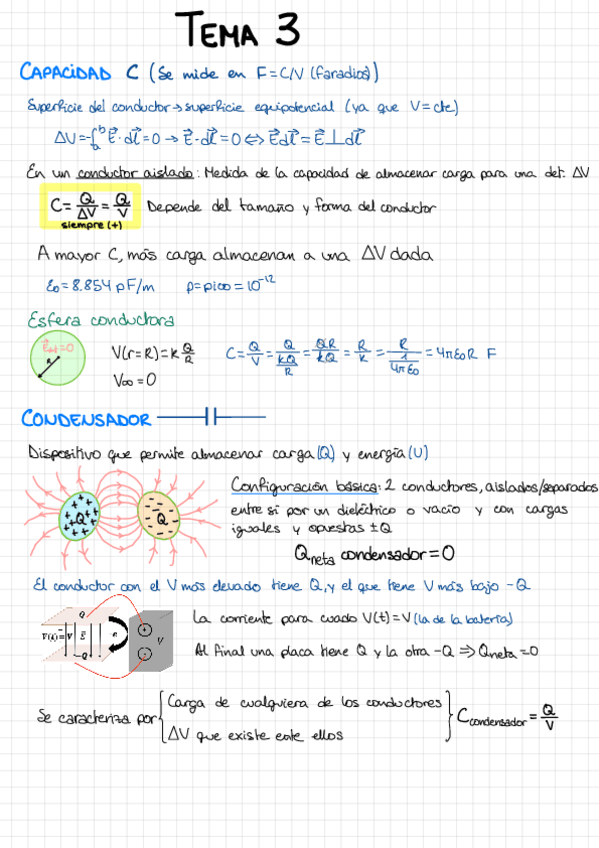 TEMA 3
CAPACIDAD C (Se mide en F = C/V (Faradios))
Superficie del conductor → superficie equipotencial (ya que V = cte)
ΔV = -∫ₐᵇ E⃗ · dl⃗ = 0 → E⃗ · dl⃗ = 0 ⟺ E⃗dl⃗ = E⃗ ⊥ dl⃗
En un conductor aislado: Medida de la capacidad de almacenar carga para una det. ΔV
C = Q/ΔV = Q/V Depende del tamaño y forma del conductor
siempre (+)
A mayor C, más carga almacenan a una ΔV dada
ε₀ = 8.854 pF/m p = pico = 10⁻¹²
Esfera conductora
V(r=R) = k Q/R C = Q/V = Q/(kQ/R) = QR/kQ = R/k = R/(1/4πε₀) = 4πε₀R F
R
V∞ = 0
CONDENSADOR
Dispositivo que permite almacenar carga (Q) y energía (U)
Configuración básica: 2 conductores, aislados/separados
entre sí por un dieléctrico o vacío y con cargas
iguales y opuestas ±Q
Q
Q
Qneta condensador = 0
El conductor con el V más elevado tiene Q, y el que tiene V más bajo -Q
La corriente para cuado V(t) = V (la de la batería)
Q
V
-Q
Al final una placa tiene Q y la otra -Q ⟹ Qneta = 0
Se caracteriza por { Carga de cualquiera de los conductores
ΔV que existe ente ellos } Ccondensador = Q/V